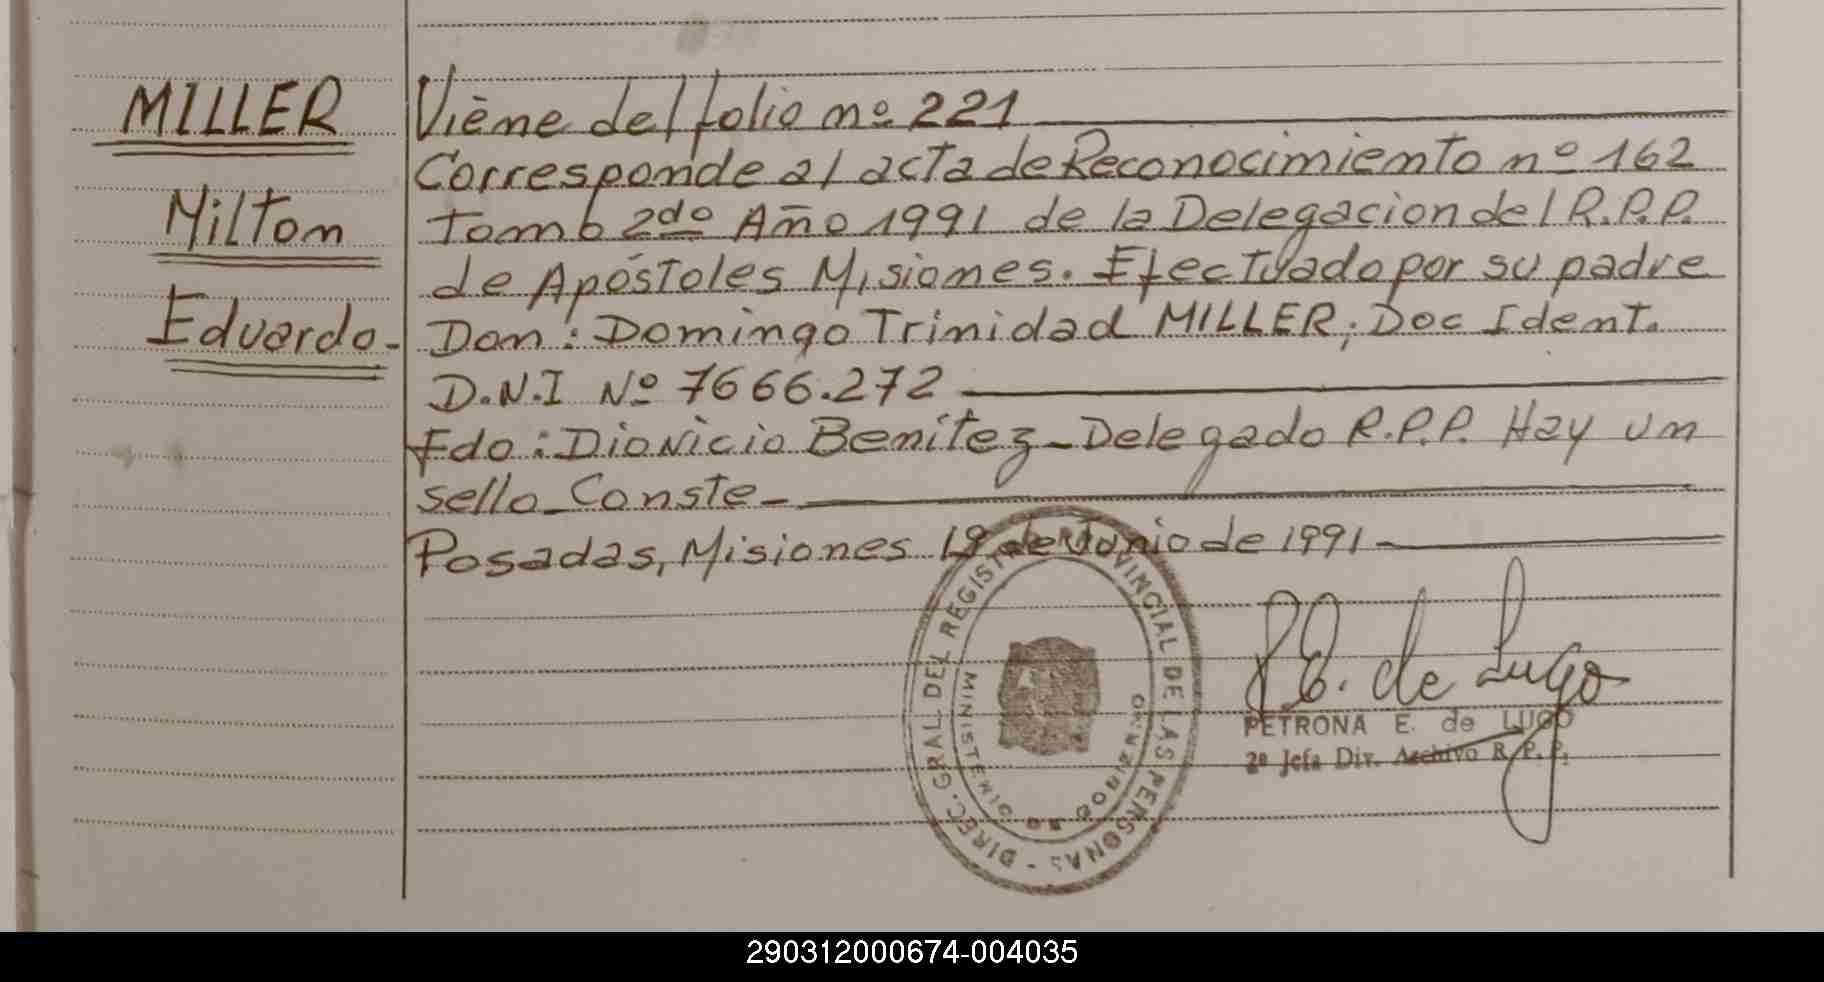 MILLER
Milton
Eduardo-
Viene del folio nº 221
Corresponde al acta de Reconocimiento nº 162
Tomo 2do Año 1991 de la Delegacion del R.P.P.
de Apóstoles Misiones. Efectuado por su padre
Don: Domingo Trinidad MILLER, Doc Ident.
D.N.I Nº 7666.272
Fdo: Dionicio Benítez - Delegado R.P.P. Hay un
sello - Conste -
Posadas, Misiones 19 de Junio de 1991 -
DIREC. GRAL. DEL REGISTRO PROVINCIAL DE LAS PERSONAS -
MINISTERIO DE GOBIERNO
P.E. de Lugo
PETRONA E. de LUGO
2º Jefa Div. Archivo R.P.P.
290312000674-004035